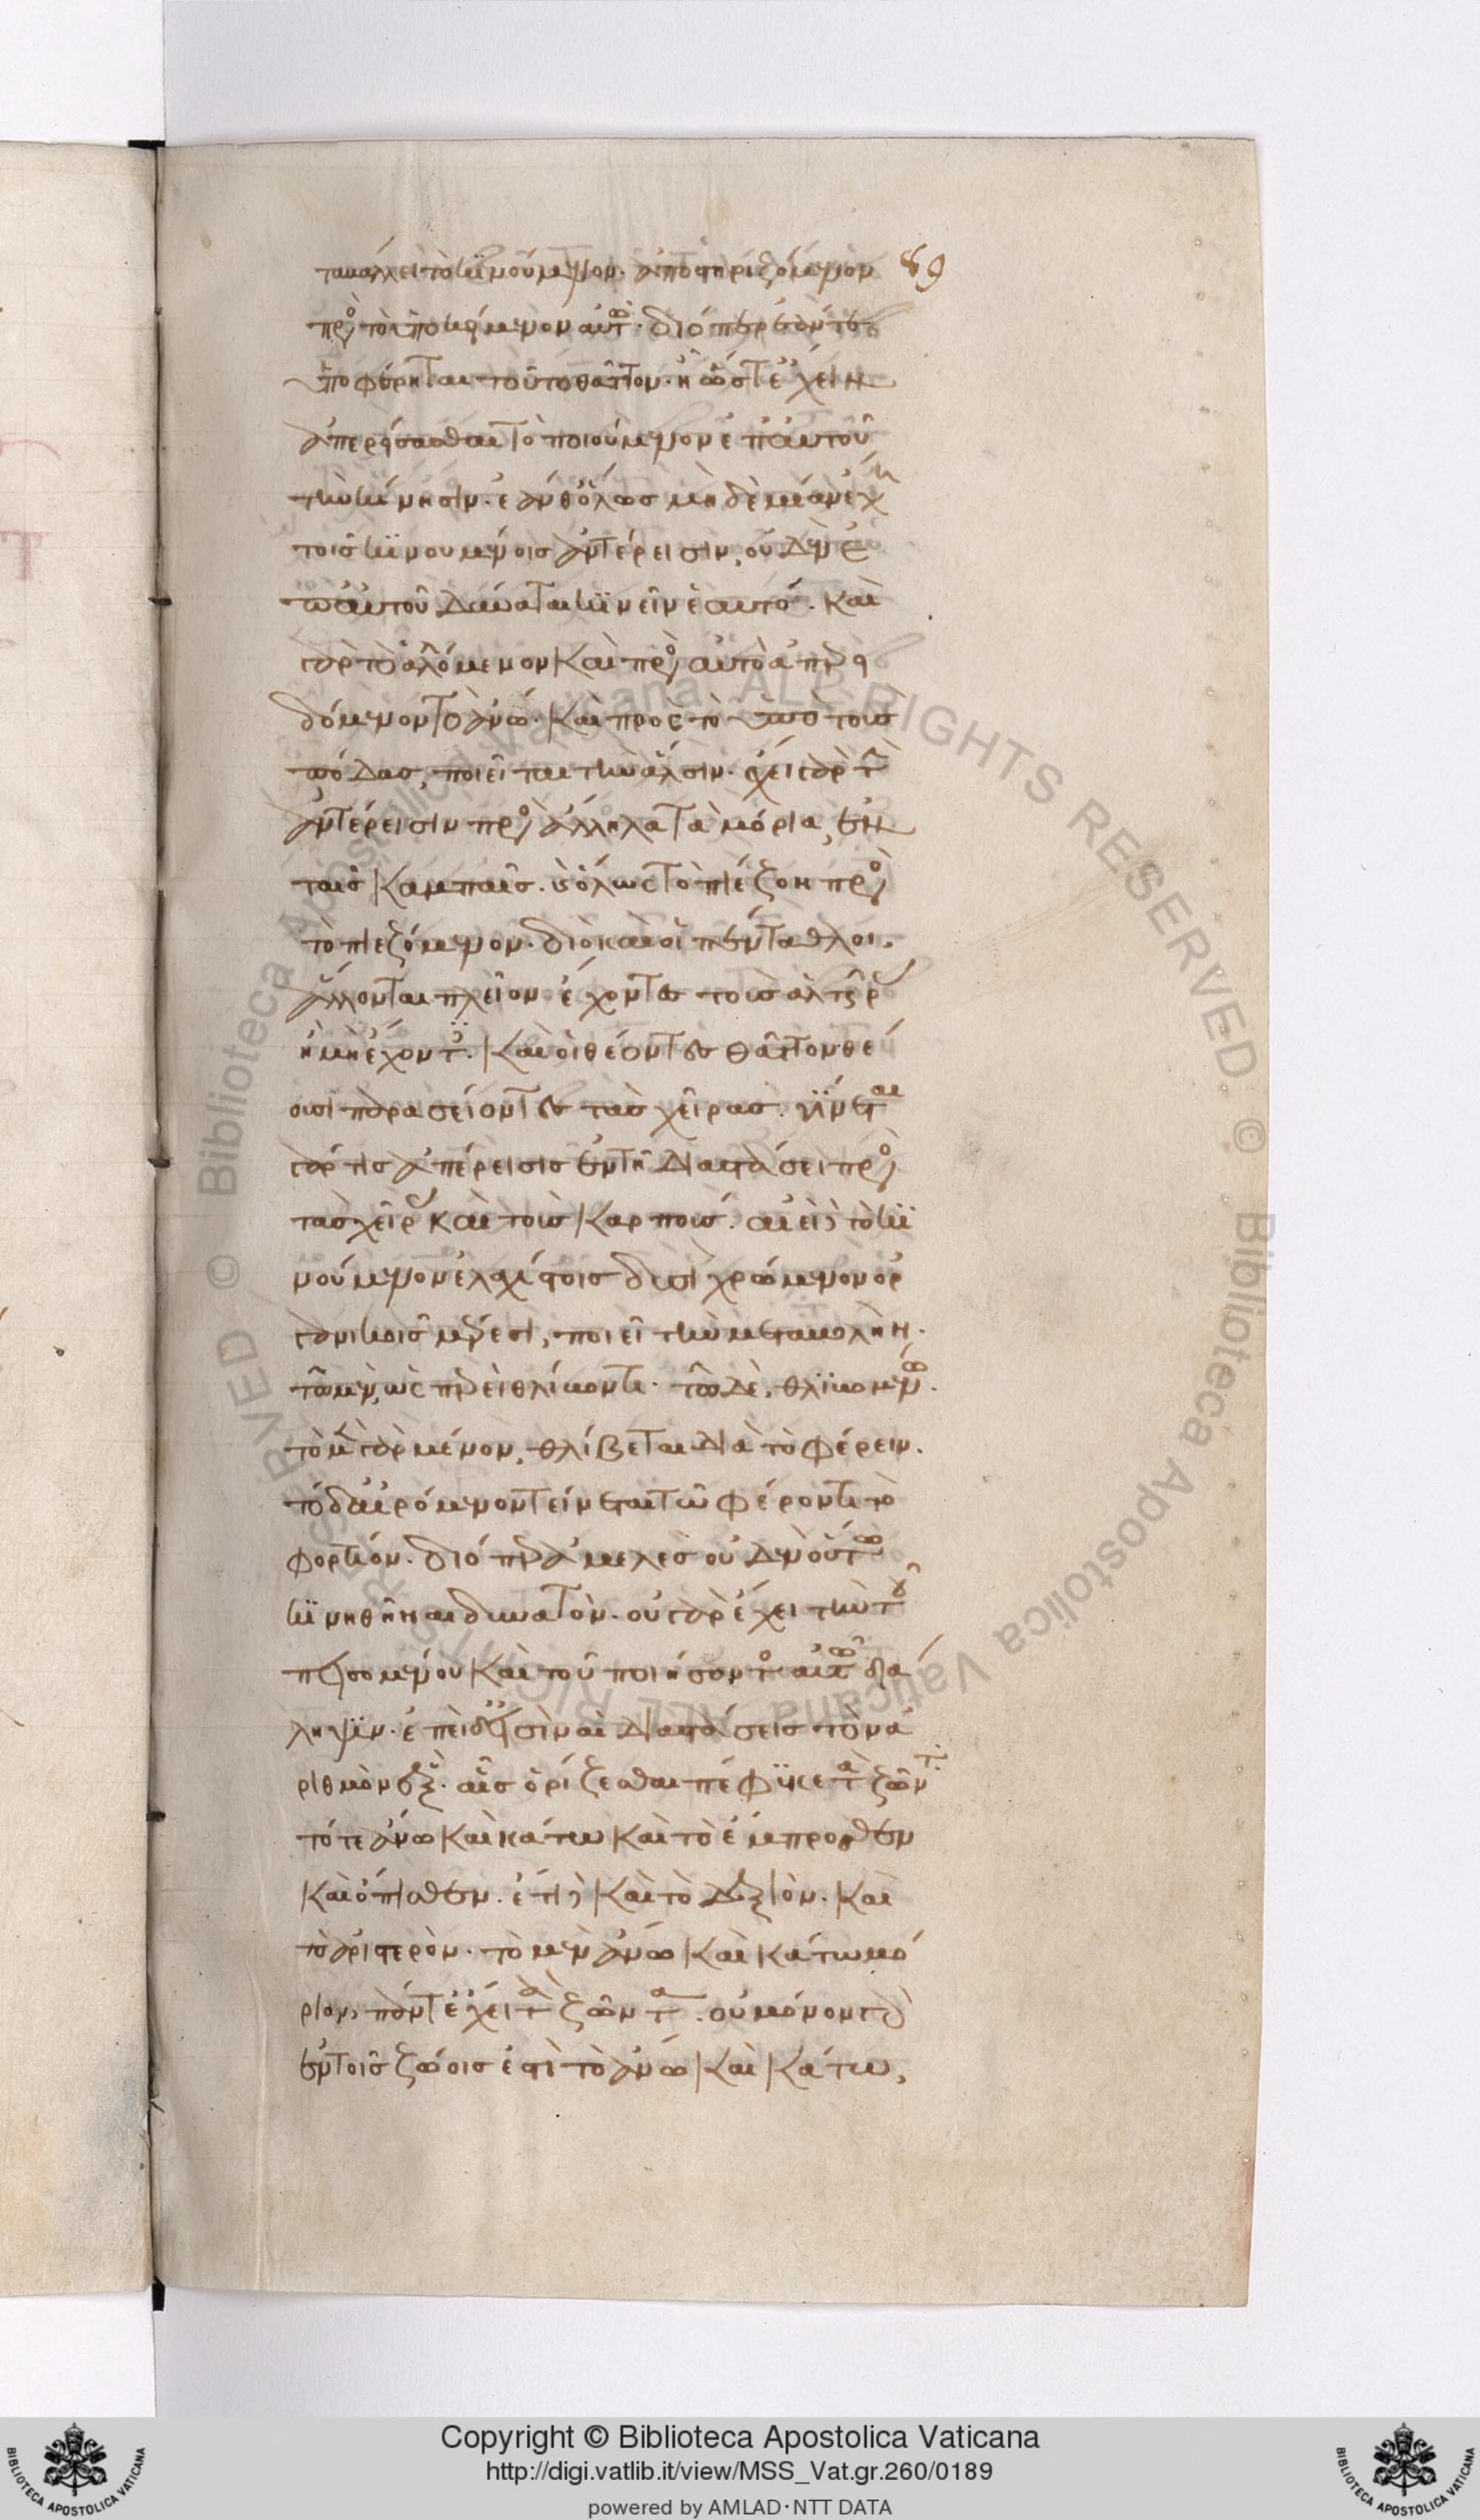 ταναλλει τὸ κινούμενον· ἀποστηριζόμενον 89
πρὸς τὸ ὑποκείμενον αὐτῶ· διόπερ ἐὰν τε
ὑποφέρηται τοῦτο θᾶττον· ἢ ὥστ' ἔχειν
ἀπερείσασθαι τὸ ποιούμενον ἐπ' αὐτοῦ
τὴν κίνησιν· ἐάν θ' ὅλως μηδεμίαν ἔχη
τοῖς κινουμένοις ἀντέρεισιν, οὐδὲν ἐπ'
αὐτοῦ δύναται κινεῖν ἑαυτό. καὶ
γὰρ τὸ ἁλόμενον καὶ πρὸς αὐτὸ ἀπερει
δόμενον τὸ ἄνω· καὶ πρὸς τὸ ὑπὸ τοὺς
πόδας, ποιεῖται τὴν ἅλσιν· ἔχει γὰρ τινὰ
ἀντέρεισιν πρὸς ἄλληλα τὰ μόρια, ἐν
ταῖς καμπαῖς. καὶ ὅλως τὸ πιέζον πρὸς
τὸ πιεζόμενον. διὸ καὶ οἱ πένταθλοι.
ἅλλονται πλεῖον ἔχοντες τοὺς ἁλτῆρας
ἢ μὴ ἔχοντες. καὶ οἱ θέοντες θᾶττον θέ
ουσι παρασείοντες τὰς χεῖρας. γίνεται
γάρ τις ἀπέρεισις ἐν τῆ διατάσει πρὸς
τὰς χεῖρας καὶ τοὺς καρπούς. αἰεὶ δὲ τὸ κι
νούμενον ἐλαχίστοις δυσὶ χρώμενον ὀρ
γανικοῖς μέρεσι, ποιεῖ τὴν μεταβολήν.
τῶ μὲν, ὡς περεὶ θλίβοντι. τῶ δὲ, θλιβομένω.
τὸ μὲν γὰρ μένον, θλίβεται διὰ τὸ φέρειν.
τὸ δ' αἰρόμενον τείνεται τῶ φέροντι τὸ
φορτίον. διόπερ ἀμελὲς οὐδὲν οὕτω
κινηθῆναι δυνατόν. οὐ γὰρ ἔχει τὴν τοῦ
πεισομένου καὶ τοῦ ποιήσοντος αὐτῶ διά
ληψιν. ἐπεὶ δ' εἰσὶν αἱ διατάσεις τὸν ἀ
ριθμὸν ἕξ. αἷς ὁρίζεσθαι πέφυκε τὰ ζῶντα
τό τε ἄνω καὶ κάτω καὶ τὸ ἔμπροσθεν
καὶ ὄπισθεν. ἔτι δὲ καὶ τὸ δεξιὸν. καὶ
τὸ ἀριστερὸν. τὸ μὲν ἄνω καὶ κάτω μό
ριον, πάντ' ἔχει τὰ ζῶντα. οὐ μόνον γὰρ
ἐν τοῖς ζώοις ἐστὶ τὸ ἄνω καὶ κάτω,
Copyright © Biblioteca Apostolica Vaticana
http://digi.vatlib.it/view/MSS_Vat.gr.260/0189
powered by AMLAD·NTT DATA